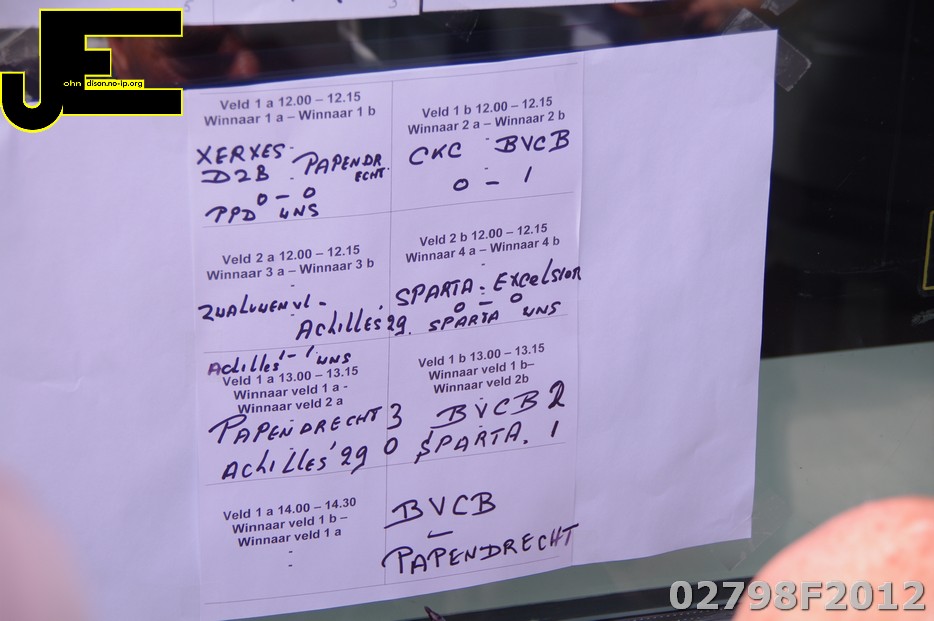 JE
ohn
dison.no-ip.org
Veld 1 a 12.00 – 12.15
Winnaar 1 a – Winnaar 1 b
XERXES
DZB - PAPENDR
ECHT.
0 – 0
PPD WNS
Veld 1 b 12.00 – 12.15
Winnaar 2 a – Winnaar 2 b
CKC - BVCB
0 – 1
Veld 2 a 12.00 – 12.15
Winnaar 3 a – Winnaar 3 b
-
ACHILLES'29.
ACHILLES 1 – 1 WNS
Veld 2 b 12.00 – 12.15
Winnaar 4 a – Winnaar 4 b
SPARTA - EXCELSIOR
0 – 0
SPARTA WNS
Veld 1 a 13.00 – 13.15
Winnaar veld 1 a -
Winnaar veld 2 a
PAPENDRECHT 3
ACHILLES'29 0
Veld 1 b 13.00 – 13.15
Winnaar veld 1 b–
Winnaar veld 2b
BVCB 2
SPARTA. 1
Veld 1 a 14.00 – 14.30
Winnaar veld 1 b –
Winnaar veld 1 a
-
BVCB
–
PAPENDRECHT
02798F2012